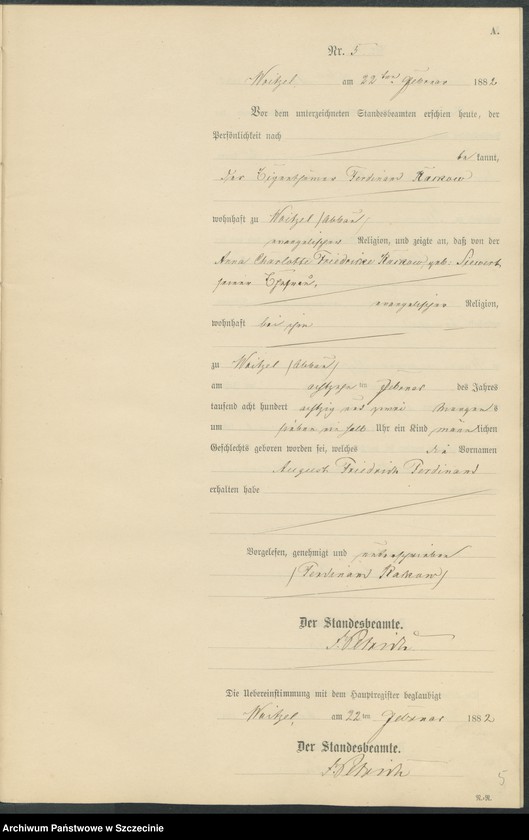 A.
Nr. 5
Woitzel, am 22ten Februar 1882
Vor dem unterzeichneten Standesbeamten erschien heute, der
Persönlichkeit nach
bekannt,
der Eigenthümer Ferdinand Rackow
wohnhaft zu Woitzel (Abbau)
evangelischer Religion, und zeigte an, daß von der
Anna Charlotte Friedricke Rackow, geb. Siewert
seiner Ehefrau,
evangelischer Religion,
wohnhaft bei ihm
zu Woitzel (Abbau)
am achtzehnten Februar des Jahres
tausend acht hundert achtzig und zwei Morgens
um sieben ein halb Uhr ein Kind männlichen
Geschlechts geboren worden sei, welches die Vornamen
August Friedrich Ferdinand
erhalten habe
Vorgelesen, genehmigt und unterschrieben
(Ferdinand Rackow)
Der Standesbeamte.
Die Uebereinstimmung mit dem Hauptregister beglaubigt
Woitzel, am 22ten Februar 1882
Der Standesbeamte.
5
Archiwum Państwowe w Szczecinie